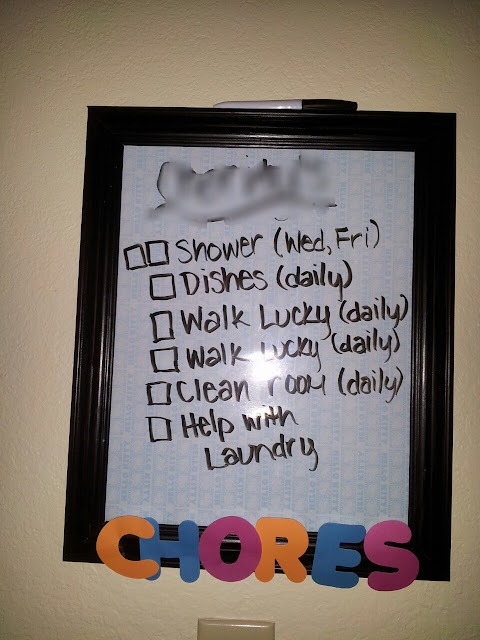 Shower (Wed, Fri)
Dishes (daily)
Walk Lucky (daily)
Walk Lucky (daily)
Clean room (daily)
Help with
Laundry
CHORES